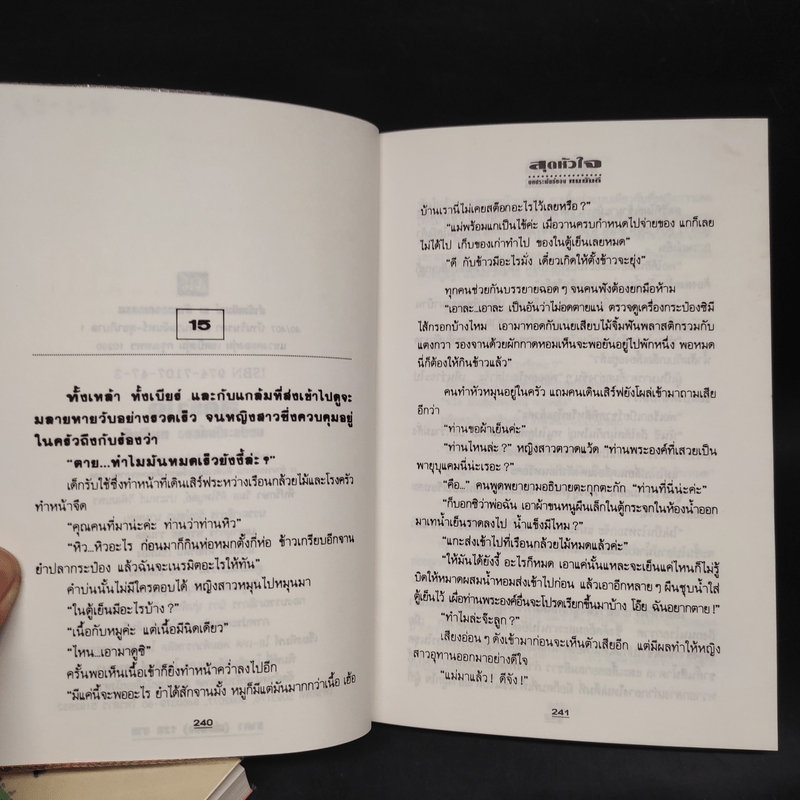 15
ทั้งเหล้า ทั้งเบียร์ และกับแกล้มที่ส่งเข้าไปดูจะ
มลายหายวับอย่างรวดเร็ว จนหญิงสาวซึ่งควบคุมอยู่
ในครัวถึงกับร้องว่า
“ตาย...ทำไมมันหมดเร็วยังงี้ล่ะ?”
เด็กรับใช้ซึ่งทำหน้าที่เดินเสิร์ฟระหว่างเรือนกล้วยไม้และโรงครัว
ทำหน้าจืด
“คุณคนที่มาน่ะค่ะ ท่านว่าท่านหิว”
“หิว...หิวอะไร ก่อนมาก็กินห่อหมกตั้งกี่ห่อ ข้าวเกรียบอีกจาน
ยำปลากระป๋อง แล้วฉันจะเนรมิตอะไรให้ทัน”
คำบ่นนั้นไม่มีใครตอบได้ หญิงสาวหมุนไปหมุนมา
“ในตู้เย็นมีอะไรบ้าง?”
“เนื้อกับหมูค่ะ แต่เนื้อมีนิดเดียว”
“ไหน...เอามาดูซิ”
ครั้นพอเห็นเนื้อเข้าก็ยิ่งทำหน้าคว่ำลงไปอีก
“มีแค่นี้จะพออะไร ยำได้สักจานมั้ง หมูก็มีแต่มันมากกว่าเนื้อ เฮ้อ
240
สุดหัวใจ
บ้านเรานี่ไม่เคยสต๊อกอะไรไว้เลยหรือ?”
“แม่พร้อมแกเป็นไข้ค่ะ เมื่อวานครบกำหนดไปจ่ายของ แกก็เลย
ไม่ได้ไป เก็บของเก่าทำไป ของในตู้เย็นเลยหมด”
“ดี กับข้าวมีอะไรมั่ง เดี๋ยวเกิดให้ตั้งข้าวจะยุ่ง”
ทุกคนช่วยกันบรรยายฉอดๆ จนคนฟังต้องยกมือห้าม
“เอาละ...เอาละ เป็นอันว่าไม่อดตายแน่ ตรวจดูเครื่องกระป๋องซิมี
ไส้กรอกบ้างไหม เอามาทอดกับเนยเสียบไม้จิ้มฟันพลาสติกรวมกับ
แตงกวา รองจานด้วยผักกาดหอมเห็นจะพอยันอยู่ไปพักหนึ่ง พอหมด
นี่ก็ต้องให้กินข้าวแล้ว”
คนทำหัวหมุนอยู่ในครัว แถมคนเดินเสิร์ฟยังโผล่เข้ามาถามเสีย
อีกว่า
“ท่านขอผ้าเย็นค่ะ”
“ท่านไหนล่ะ?” หญิงสาวตวาดแว้ด “ท่านพระองค์ที่เสวยเป็น
พายุบุแคมนี่น่ะเรอะ?”
“คือ...” คนพูดพยายามอธิบายตะกุกตะกัก “ท่านที่นี่น่ะค่ะ”
“ก็บอกซิว่าพ่อฉัน เอาผ้าขนหนูผืนเล็กในตู้กระจกในห้องน้ำออก
มาเทน้ำเย็นราดลงไป น้ำแข็งมีไหม?”
“แกะส่งเข้าไปที่เรือนกล้วยไม้หมดแล้วค่ะ”
“ให้มันได้ยังงี้ อะไรก็หมด เอาแค่นั้นแหละจะเย็นแค่ไหนก็ไม่รู้
บิดให้หมาดผสมน้ำหอมส่งเข้าไปก่อน แล้วเอาอีกหลายๆ ผืนชุบน้ำใส่
ตู้เย็นไว้ เผื่อท่านพระองค์อื่นจะโปรดเรียกขึ้นมาบ้าง โอ๊ย ฉันอยากตาย!”
“ทำไมล่ะจ๊ะลูก?”
เสียงอ่อนๆ ดังเข้ามาก่อนจะเห็นตัวเสียอีก แต่มีผลทำให้หญิง
สาวอุทานออกมาอย่างดีใจ
“แม่มาแล้ว! ดีจัง!”
241